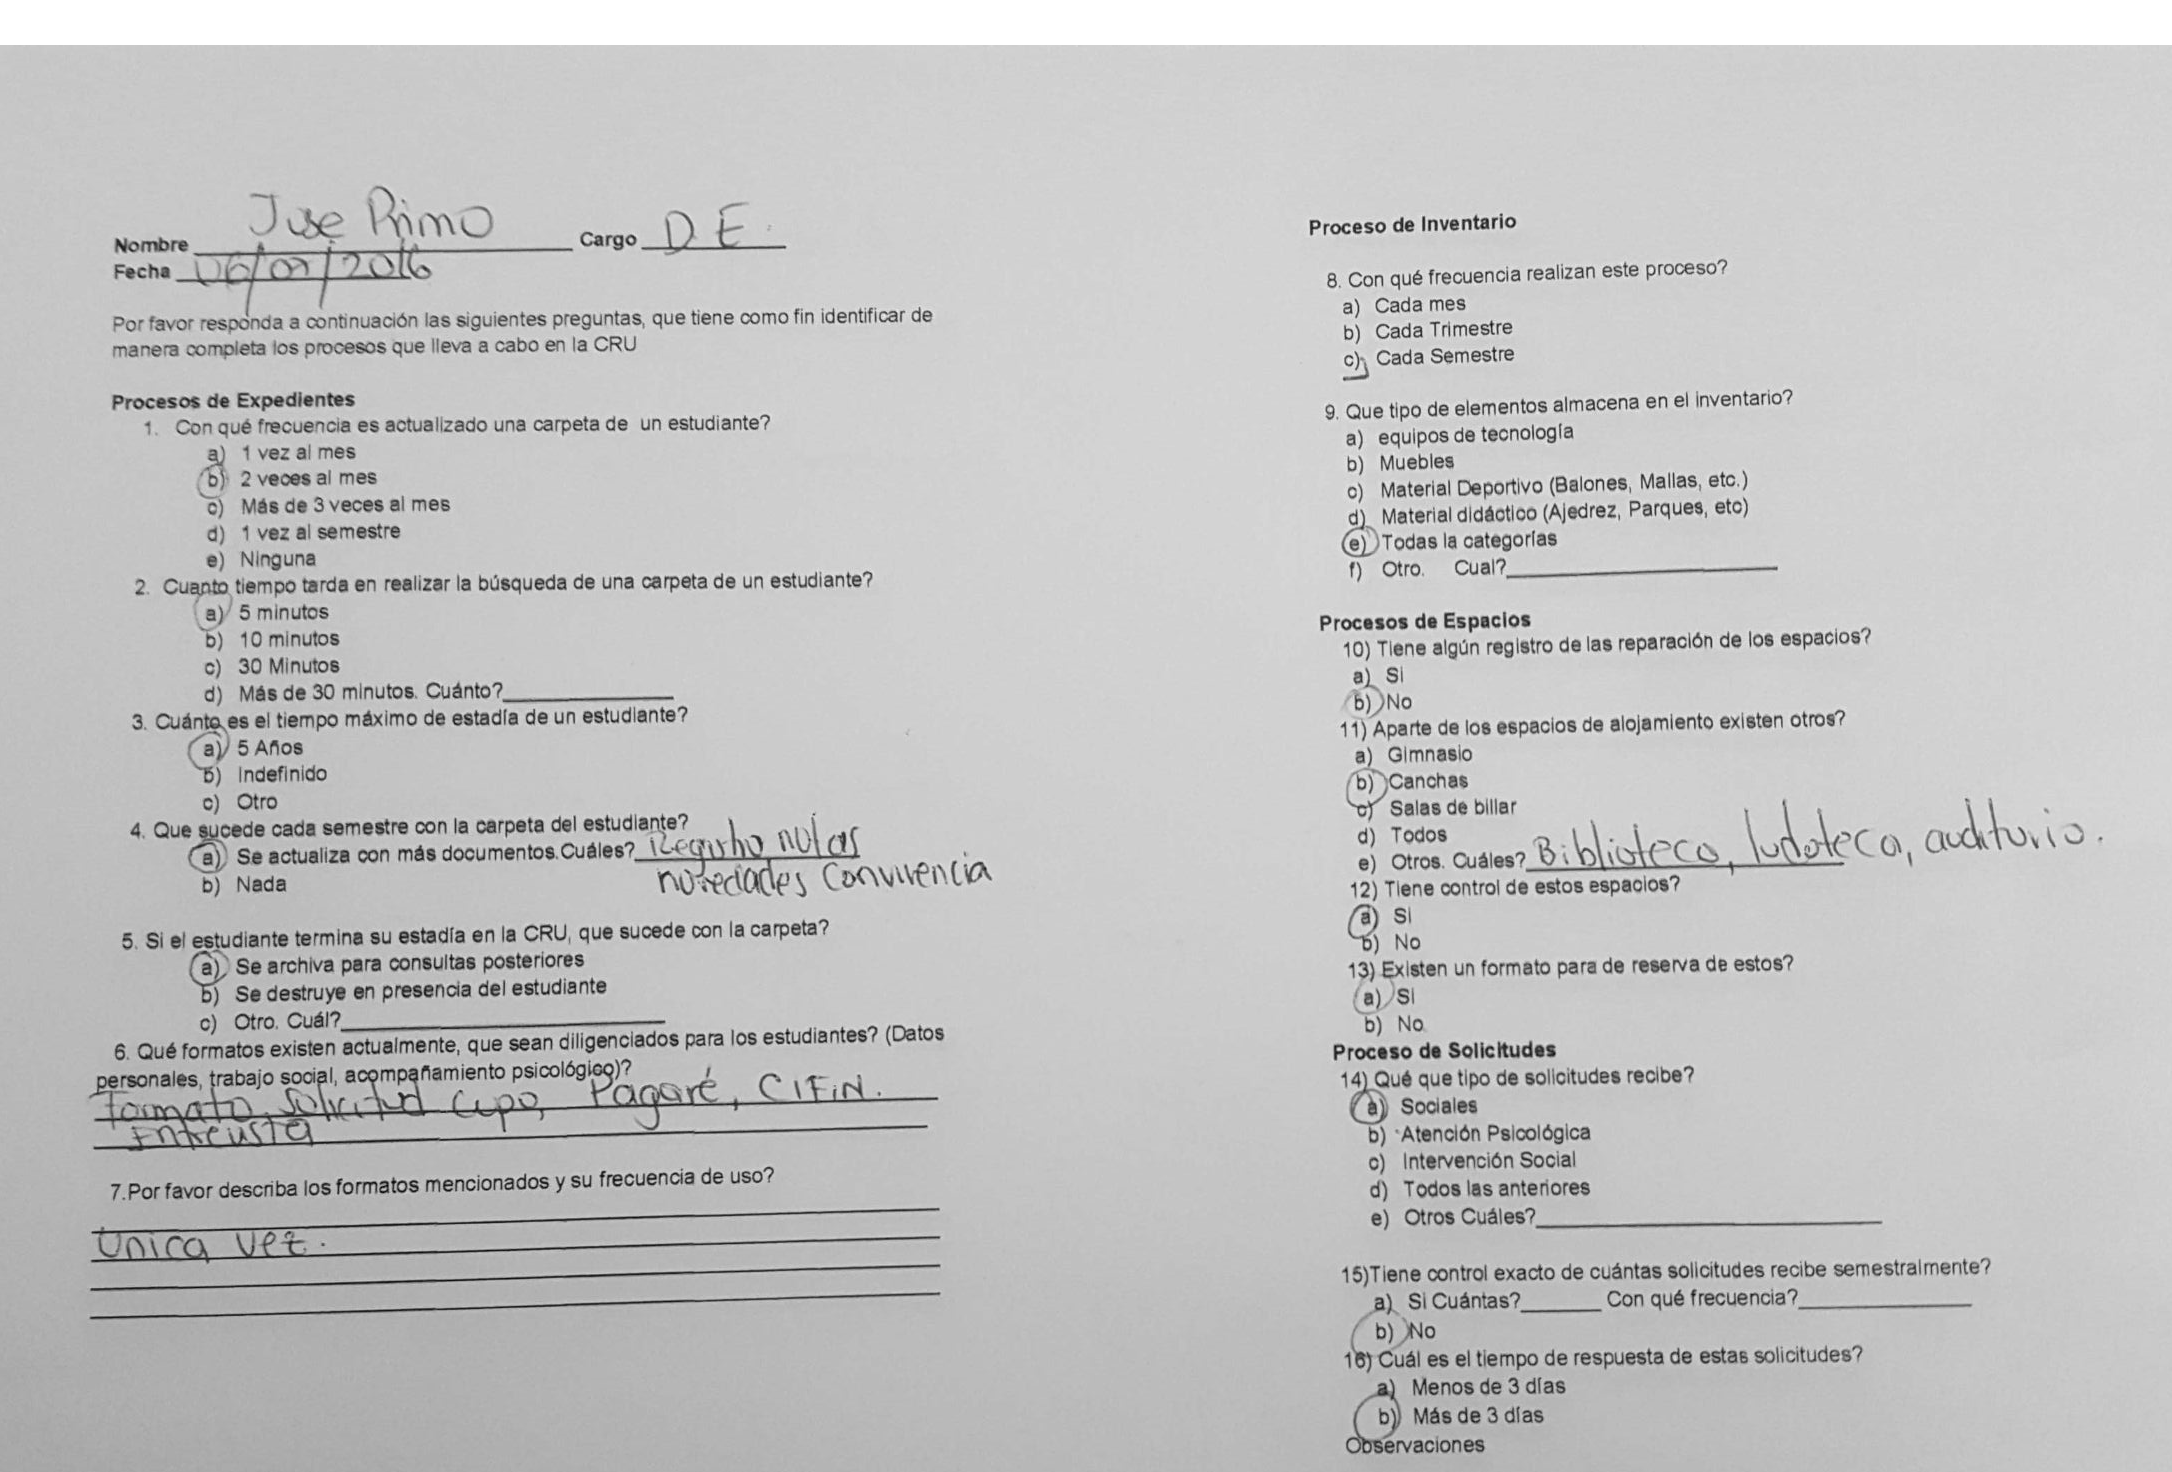 Nombre Jose Primo Cargo D E.
Fecha 06/07/2016
Por favor responda a continuación las siguientes preguntas, que tiene como fin identificar de
manera completa los procesos que lleva a cabo en la CRU
Procesos de Expedientes
1. Con qué frecuencia es actualizado una carpeta de un estudiante?
a) 1 vez al mes
b) 2 veces al mes
c) Más de 3 veces al mes
d) 1 vez al semestre
e) Ninguna
2. Cuanto tiempo tarda en realizar la búsqueda de una carpeta de un estudiante?
a) 5 minutos
b) 10 minutos
c) 30 Minutos
d) Más de 30 minutos. Cuánto?
3. Cuánto es el tiempo máximo de estadía de un estudiante?
a) 5 Años
b) Indefinido
c) Otro
4. Que sucede cada semestre con la carpeta del estudiante?
a) Se actualiza con más documentos.Cuáles? Registro notas
novedades Convivencia
b) Nada
5. Si el estudiante termina su estadía en la CRU, que sucede con la carpeta?
a) Se archiva para consultas posteriores
b) Se destruye en presencia del estudiante
c) Otro. Cuál?
6. Qué formatos existen actualmente, que sean diligenciados para los estudiantes? (Datos
personales, trabajo social, acompañamiento psicológico)?
Formato, Solicitud Cupo, Pagaré, CIFIN.
Entrevista
7.Por favor describa los formatos mencionados y su frecuencia de uso?
Unica vez.
Proceso de Inventario
8. Con qué frecuencia realizan este proceso?
a) Cada mes
b) Cada Trimestre
c) Cada Semestre
9. Que tipo de elementos almacena en el inventario?
a) equipos de tecnología
b) Muebles
c) Material Deportivo (Balones, Mallas, etc.)
d) Material didáctico (Ajedrez, Parques, etc)
e) Todas la categorías
f) Otro. Cual?
Procesos de Espacios
10) Tiene algún registro de las reparación de los espacios?
a) Si
b) No
11) Aparte de los espacios de alojamiento existen otros?
a) Gimnasio
b) Canchas
c) Salas de billar
d) Todos
e) Otros. Cuáles? Biblioteca, ludoteca, auditorio.
12) Tiene control de estos espacios?
a) Si
b) No
13) Existen un formato para de reserva de estos?
a) Si
b) No
Proceso de Solicitudes
14) Qué que tipo de solicitudes recibe?
a) Sociales
b) Atención Psicológica
c) Intervención Social
d) Todos las anteriores
e) Otros Cuáles?
15)Tiene control exacto de cuántas solicitudes recibe semestralmente?
a) Si Cuántas? Con qué frecuencia?
b) No
16) Cuál es el tiempo de respuesta de estas solicitudes?
a) Menos de 3 días
b) Más de 3 días
Observaciones